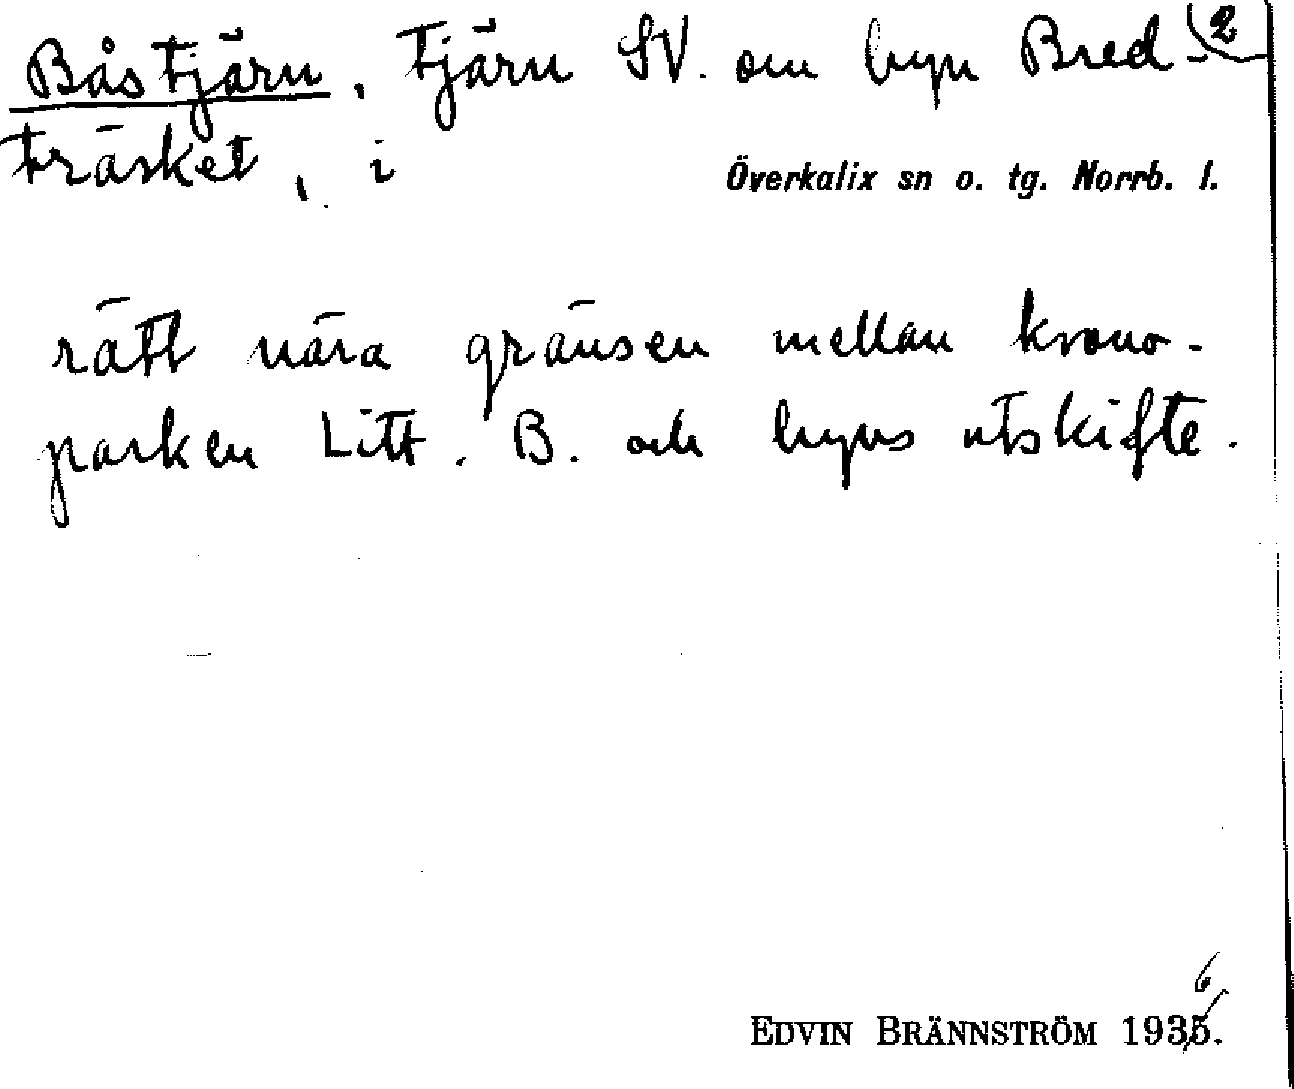 Båstjärn. Tjärn SV. om byn Bred- 2
träsket, i Överkalix sn o. tg. Norrb. l.
rätt nära gränsen mellan krono-
parken Litt. B. och byns utskifte.
6
EDVIN BRÄNNSTRÖM 1935.